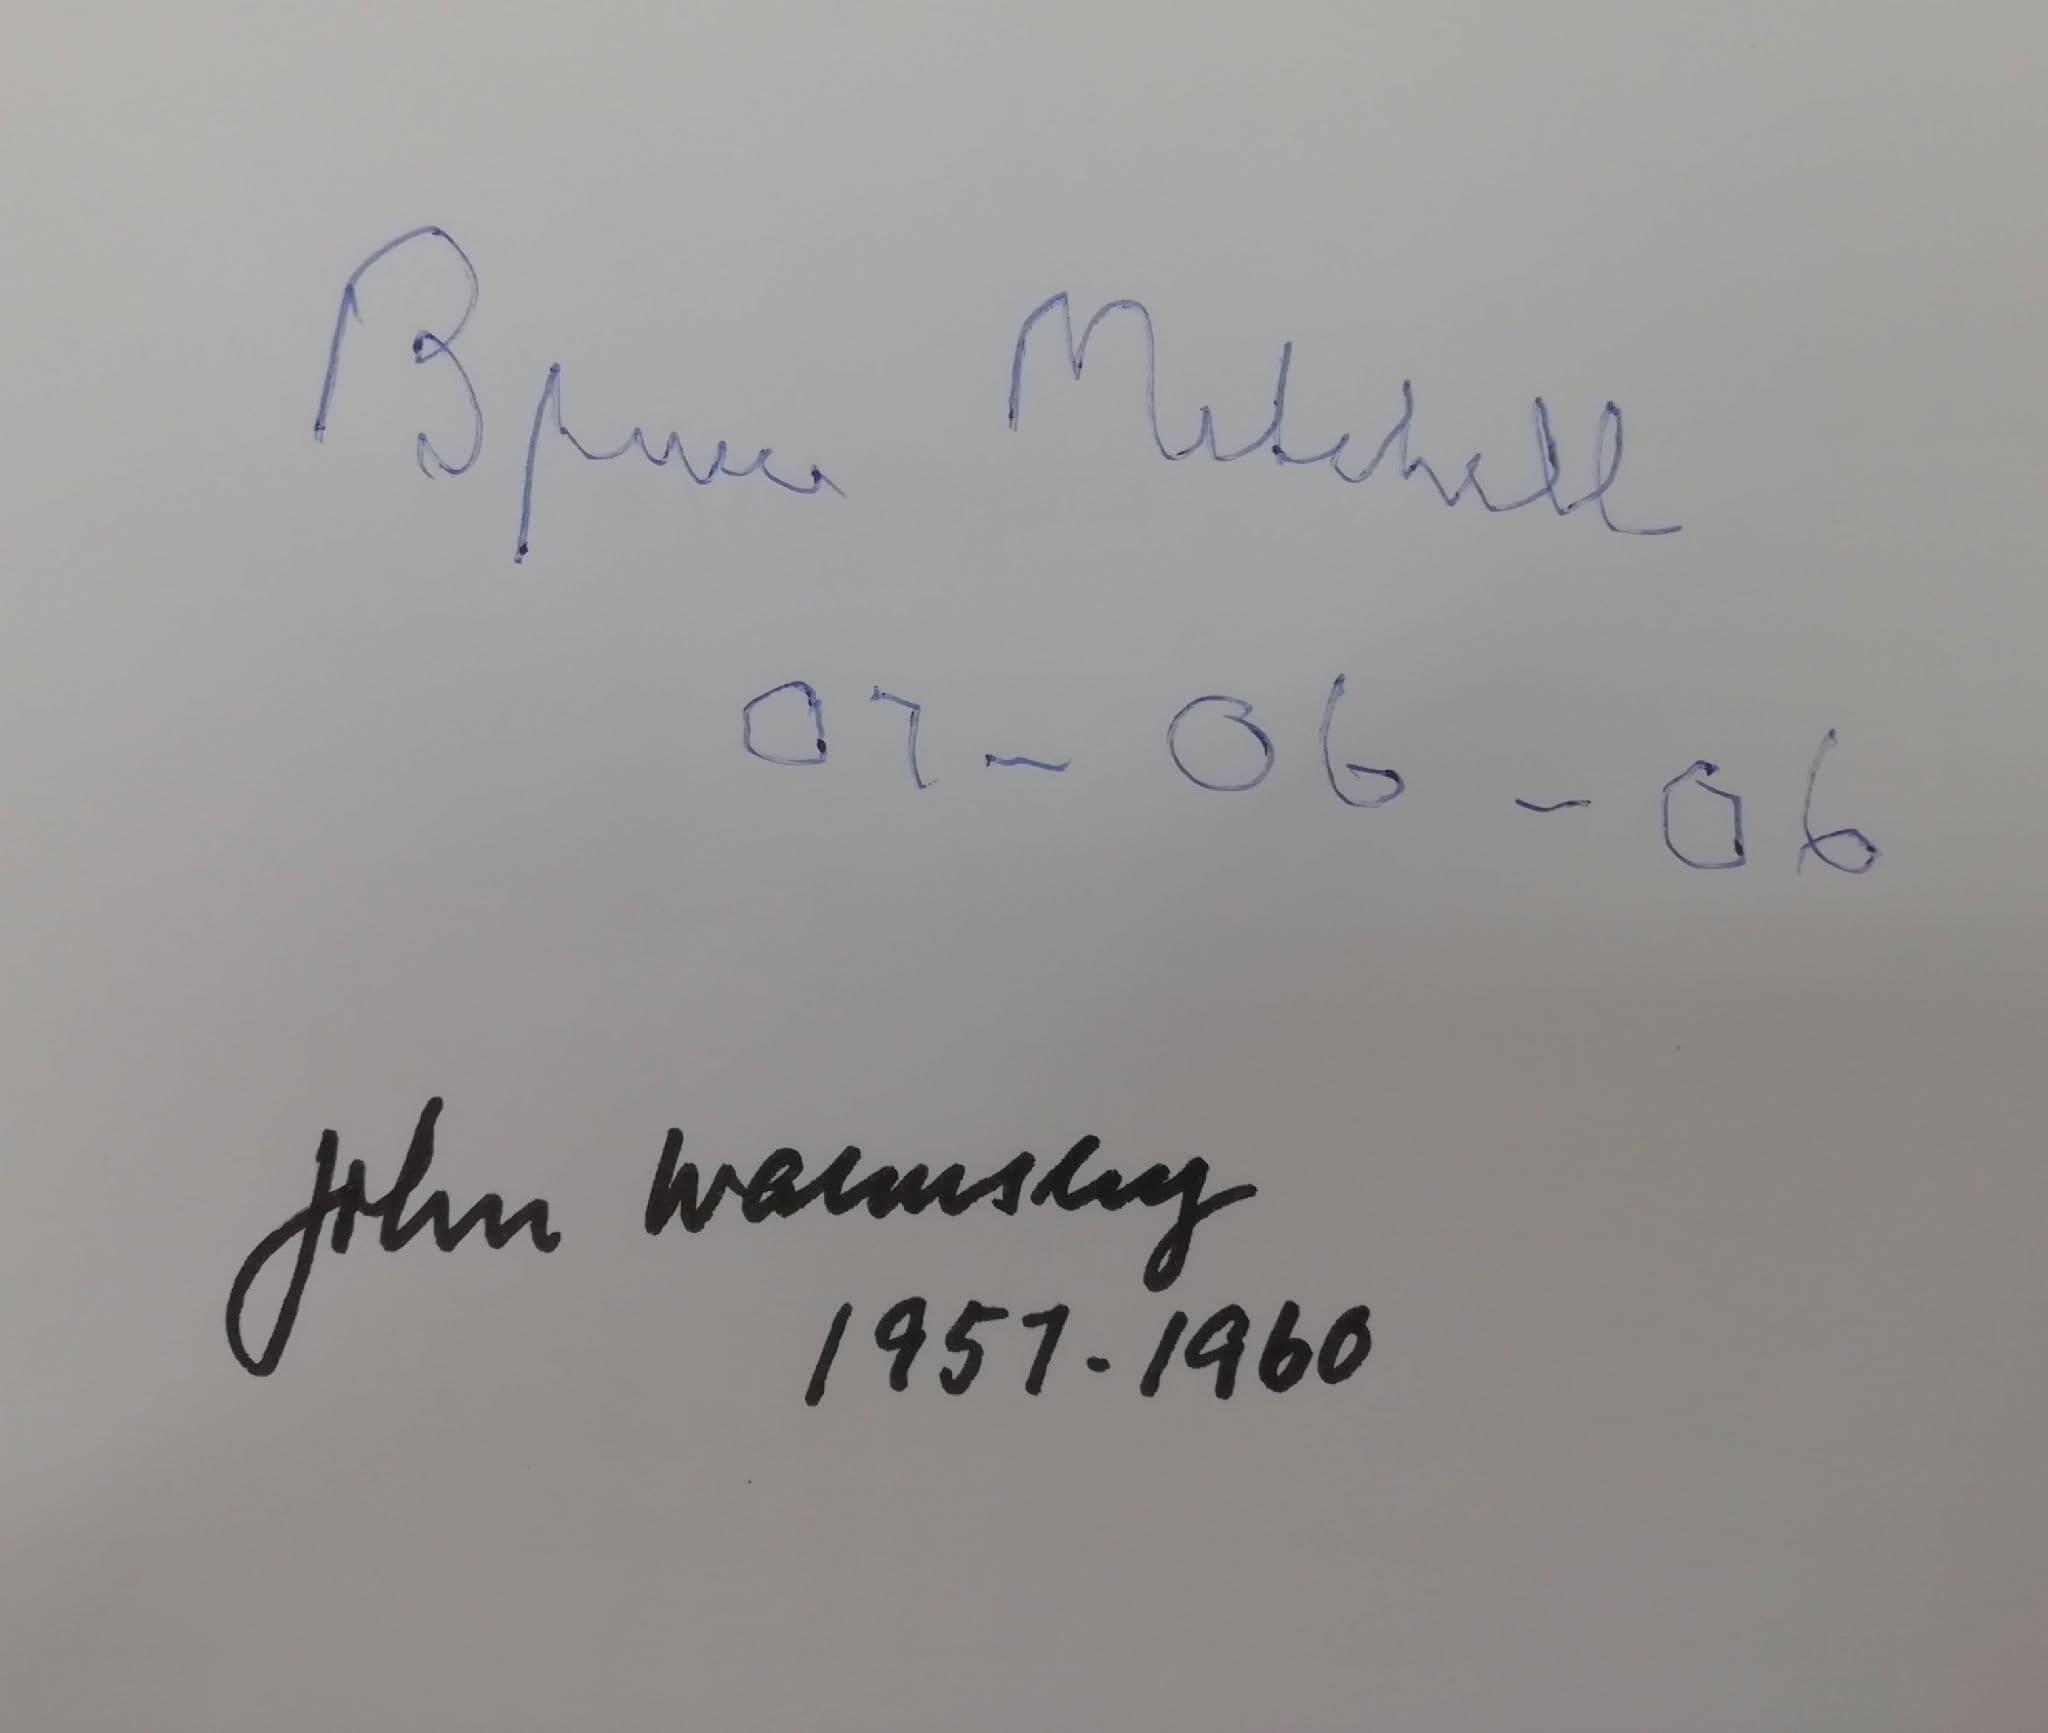 Bruce Mitchell
07-06-06
John Walmsley
1957-1960